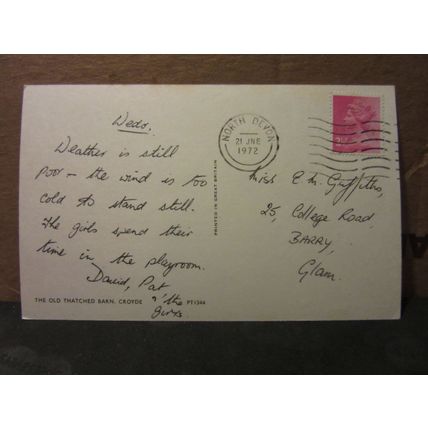 Weds.
Weather is still
poor – the wind is too
cold to stand still.
The girls spend their
time in the playroom.
David, Pat
& the
girls.
THE OLD THATCHED BARN, CROYDE
PT1344
PRINTED IN GREAT BRITAIN
NORTH DEVON
21 JNE
1972
Miss E. M. Griffiths,
25, College Road,
BARRY,
Glam.